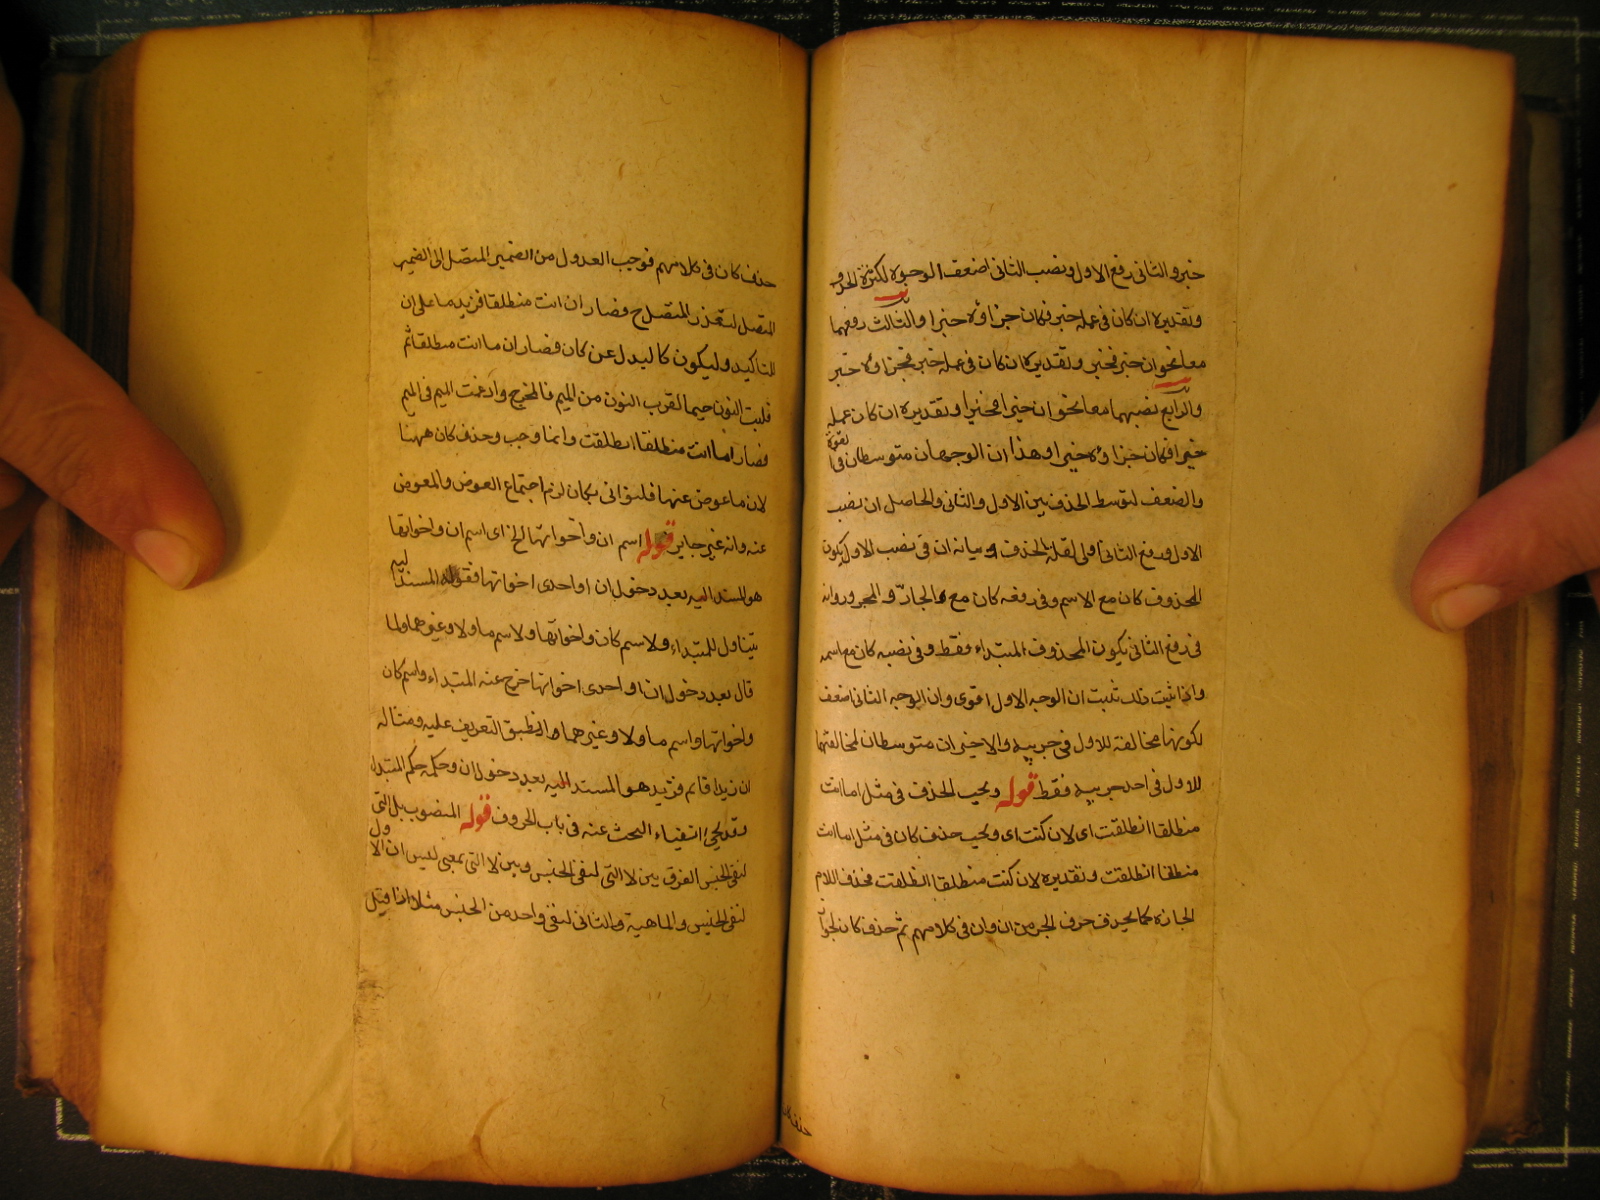 خبر والثاني رفع الاول ونصب الثاني اضعف الوجوه لكثرة الحذف
وتقديره ان كان في عمله خير فكان جزاؤه خيرا والثالث رفعهما
معا نحو ان خير فخير وتقديره ان كان في عمله خير فجزاؤه خير
والرابع نصبهما معا نحو ان خيرا فخيرا وتقديره ان كان عمله
خيرا فكان جزاؤه خيرا وهذان الوجهان متوسطان في القوة
والضعف لتوسط الحذف بين الاول والثاني والحاصل ان نصب
الاول ورفع الثاني اولى لقلة الحذف وبيانه ان في نصب الاول يكون
المحذوف كان مع الاسم وفي رفعه كان مع الجار والمجرور وان
في رفع الثاني يكون المحذوف المبتداء فقط وفي نصبه كان مع اسمه
واذا ثبت ذلك ثبت ان الوجه الاول اقوى وان الوجه الثاني اضعف
لكونها مخالفة للاول في جزييه والاخيران متوسطان لمخالفتهما
للاول في احد جزييه فقط قوله ويجب الحذف في مثل اما انت
منطلقا انطلقت اي لان كنت اي ويجب حذف كان في مثل اما انت
منطلقا انطلقت وتقديره لان كنت منطلقا انطلقت فحذف اللام
الجارة كما يحذف حرف الجر من ان وان في كلامهم ثم حذف كان لجواز
حذف كان
حذف كان في كلامهم فوجب العدول من الضمير المتصل الى الضمير
المتصل لتعذر المتصل ح فصار ان انت منطلقا فزيد ما على ان
للتاكيد وليكون كالبدل عن كان فصار ان ما انت منطلقا ثم
قلبت النون ميما لقرب النون من الميم في المخرج وادغمت الميم في الميم
فصار اما انت منطلقا انطلقت وانما وجب وحذف كان ههنا
لان ما عوض عنها فلو اتى بكان لزم اجتماع العوض والمعوض
عنه وانه غير جايز قوله اسم ان واخواتها الخ اى اسم ان واخواتها
هو المسند اليه بعد دخول ان او احدى اخواتها فقوله المسند اليه
يتناول للمبتداء ولاسم كان واخواتها ولاسم ما ولا وغيرهما ولما
قال بعد دخول ان او احدى اخواتها خرج عنه المبتداء واسم كان
واخواتها واسم ما ولا وغيرهما وانطبق التعريف عليه ومثاله
ان زيدا قائم فزيد هو المسند اليه بعد دخول ان وحكمه حكم المبتداء
وقد يجئ استيفاء البحث عنه في باب الحروف قوله المنصوب بلا التي
لنفي الجنس الفرق بين لا التي لنفي الجنس وبين لا التي بمعنى ليس ان الاول
لنفي الجنس والماهية والثاني لنفي واحد من الجنس مثلا اذا قيل